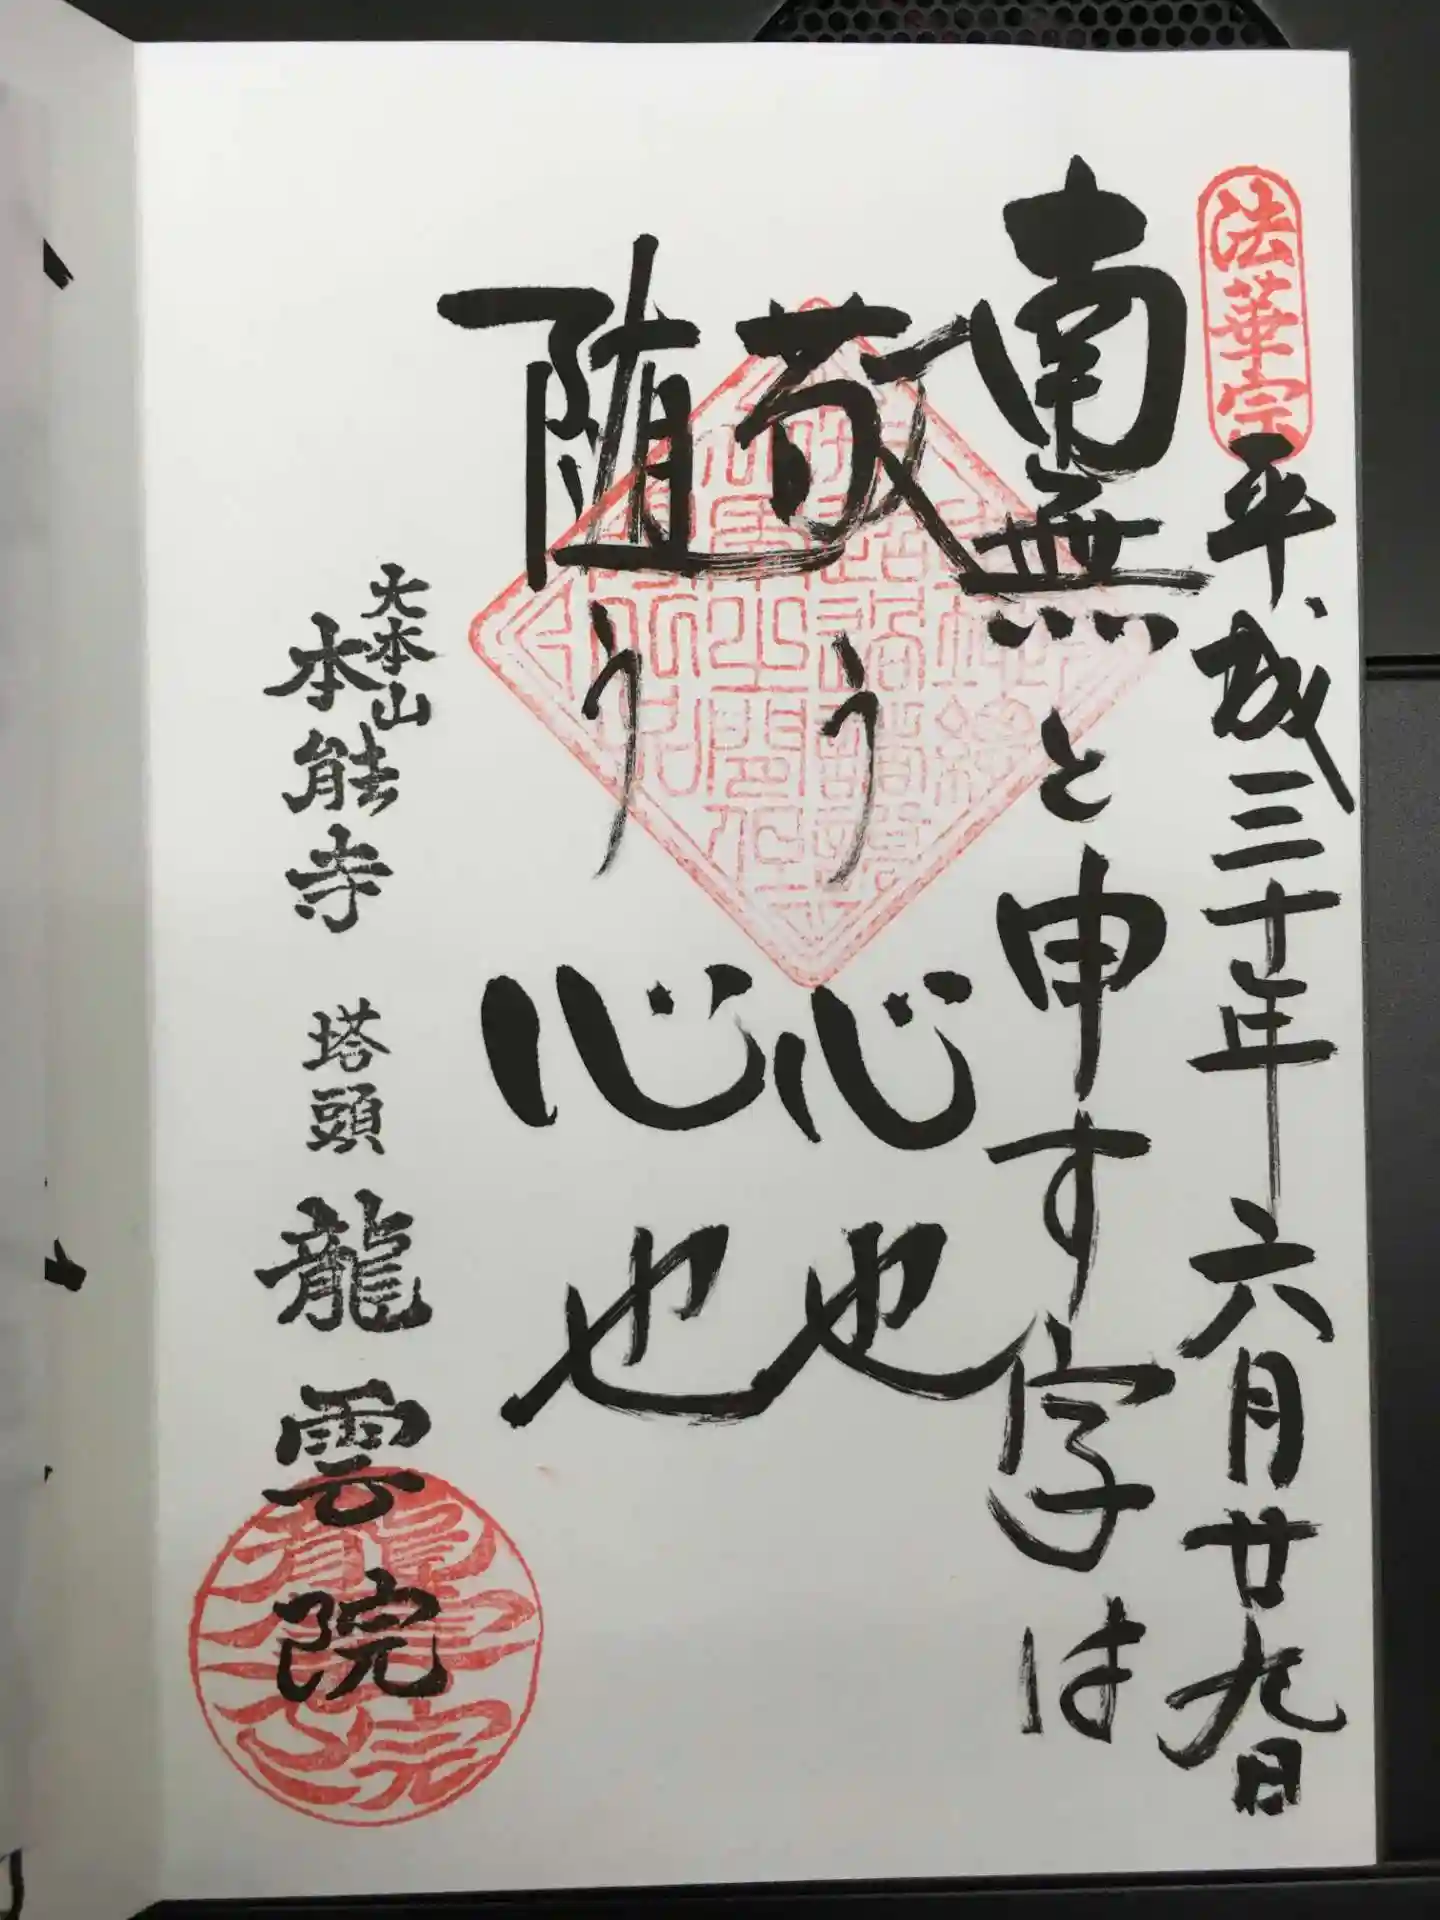 法華宗
平成三十年六月廿九日
南無と申す字は
敬う心也
随う心也
大本山
本能寺 塔頭 龍雲院